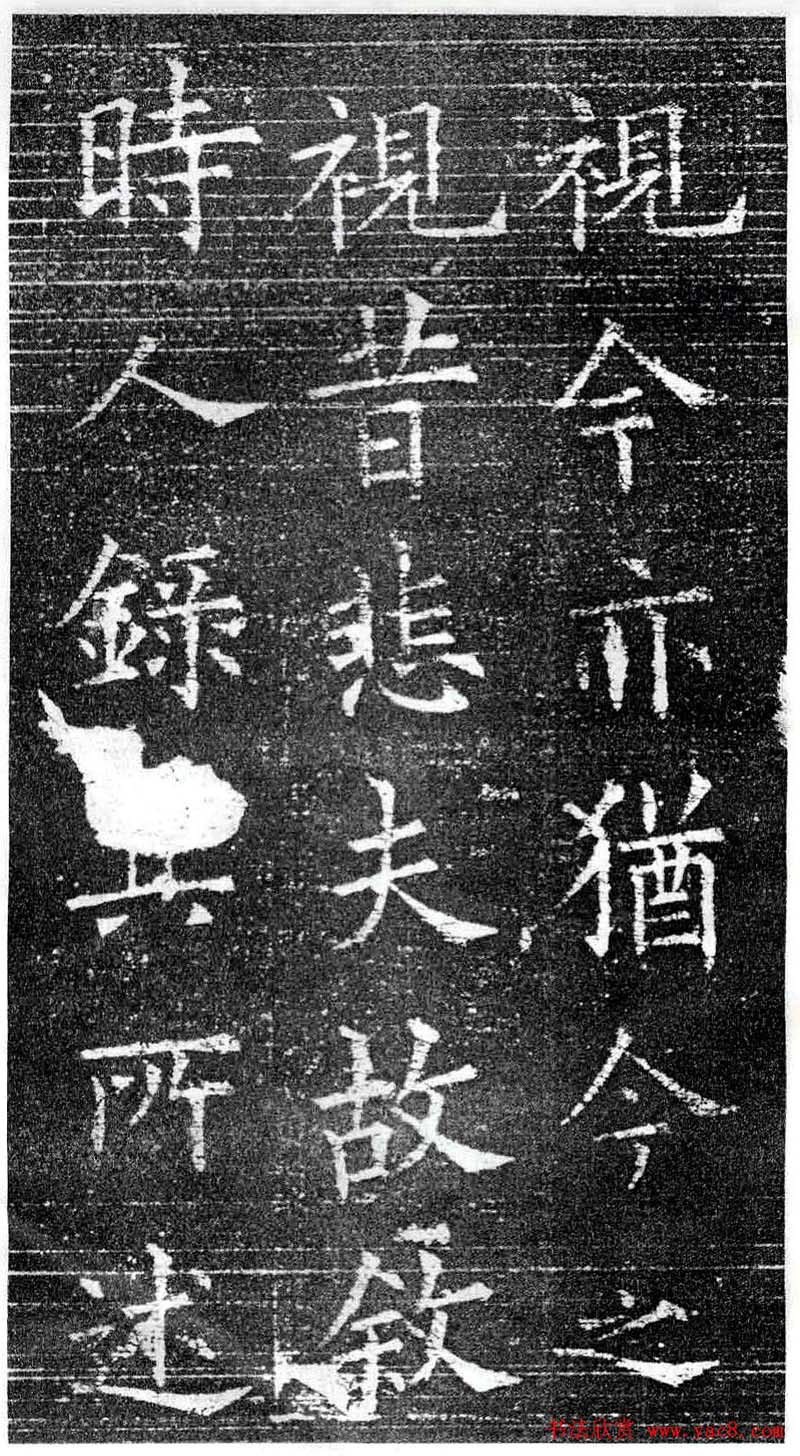 視今亦猶今之
視昔悲夫故敘
時人錄其所述
书法欣赏 www.yac8.com